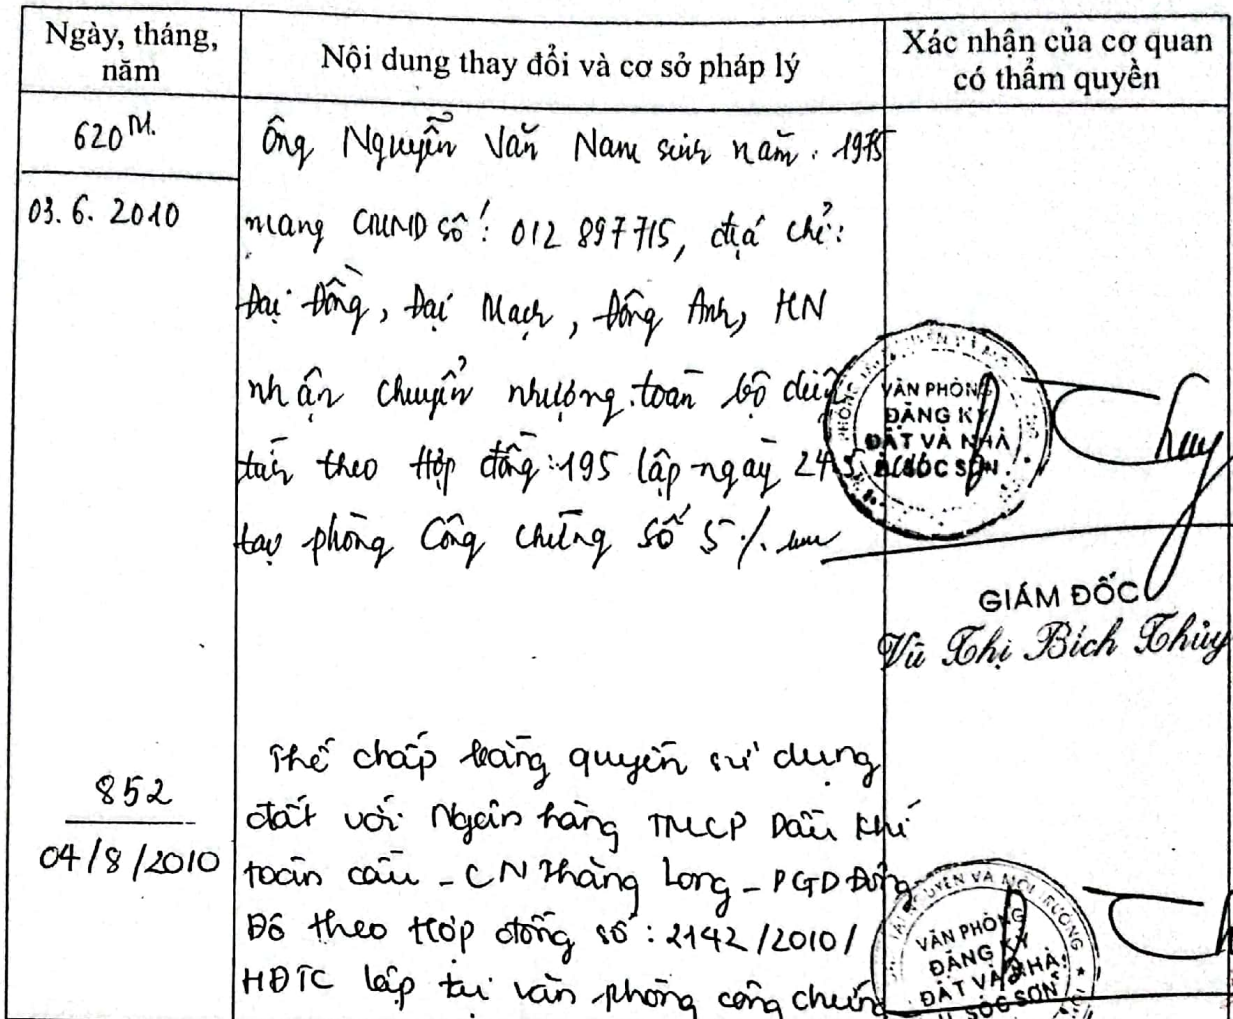 Ngày, tháng, năm
Nội dung thay đổi và cơ sở pháp lý
Xác nhận của cơ quan có thẩm quyền
620
03.6.2010
Ông Nguyễn Văn Nam sinh năm. 1975
mang CMND số: 012 897715, địa chỉ:
Đại Đồng, Đại Mạch, Đông Anh, HN
nhận chuyển nhượng toàn bộ diện
tích theo Hợp đồng: 195 lập ngày 24.5
tại phòng Công chứng số 5 /.
VĂN PHÒNG
ĐĂNG KÝ
ĐẤT VÀ NHÀ
H. SÓC SƠN
GIÁM ĐỐC
Vũ Thị Bích Thủy
852
04/8/2010
Thế chấp bằng quyền sử dụng
đất với Ngân hàng TMCP Dầu khí
toàn cầu - CN Thăng Long - PGD Đông
Đô theo Hợp đồng số: 2142/2010/
HĐTC lập tại văn phòng công chứng
TÀI NGUYÊN VÀ MÔI TRƯỜNG
VĂN PHÒNG
ĐĂNG KÝ
ĐẤT VÀ NHÀ
H. SÓC SƠN